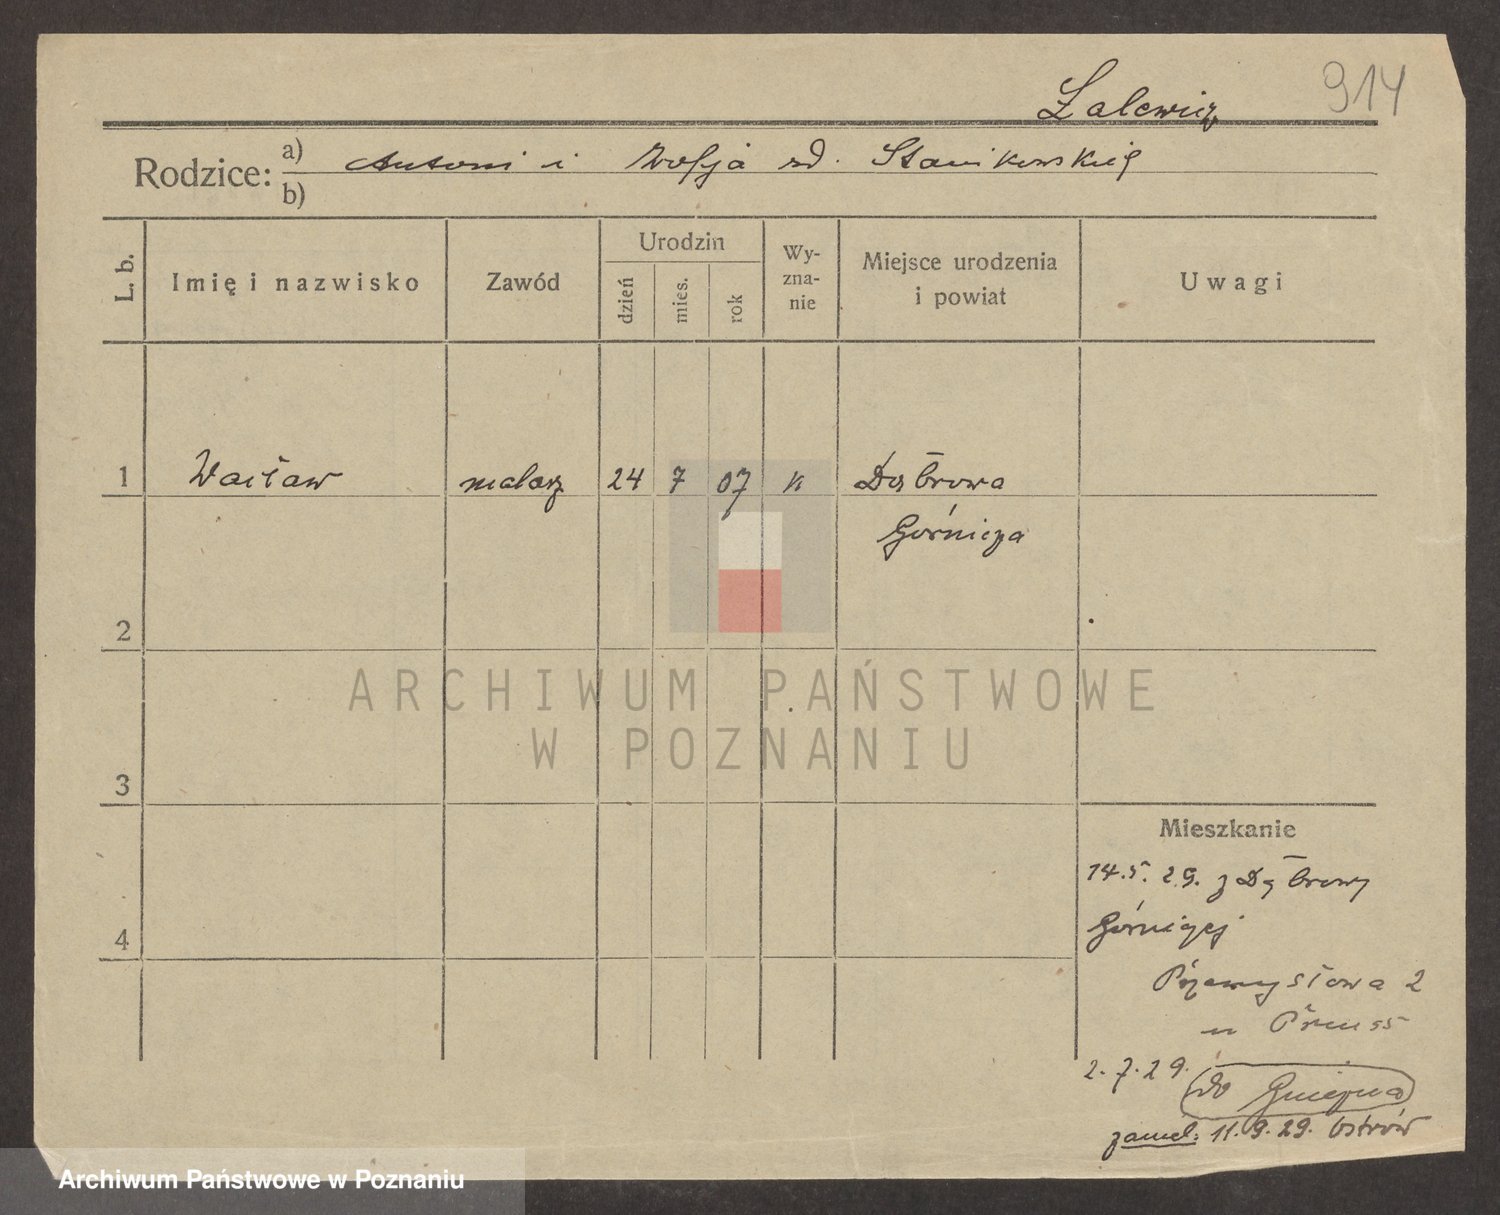 914
Zalewicz
Rodzice: a) Antoni i Zofja zd. Stanikowskiej
b)
L. b.
Imię i nazwisko
Zawód
Urodzin
dzień
mies.
rok
Wy-
zna-
nie
Miejsce urodzenia
i powiat
Uwagi
1 Wacław malarz 24 7 07 k Dąbrowa
Górnicza
2
3
4
Mieszkanie
14.5.29. z Dąbrowy
Górniczej
Przemysłowa 2
u Preuss
2.7.29. do Gniezna
zamel: 11.9.29. Ostrów
ARCHIWUM PAŃSTWOWE
W POZNANIU
Archiwum Państwowe w Poznaniu